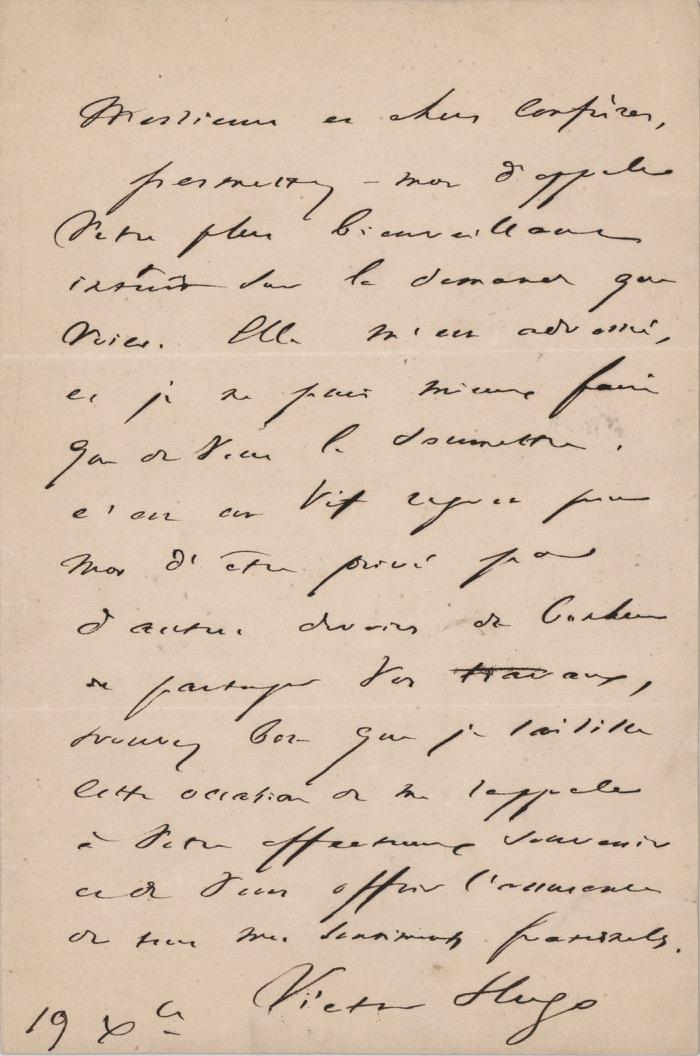 Messieurs et chers confrères,
permettez-moi d'appeler
votre plus bienveillant
intérêt sur la demande que
voici. Elle m'est adressée,
et je ne puis mieux faire
que de vous la soumettre.
c'est un vif regret pour
moi d'être privé par
d'autres devoirs du bonheur
de partager vos travaux,
trouvez bon que je saisisse
cette occasion de me rappeler
à votre affectueux souvenir
et de vous offrir l'assurance
de tous mes sentiments fraternels.
Victor Hugo
19 Xbre